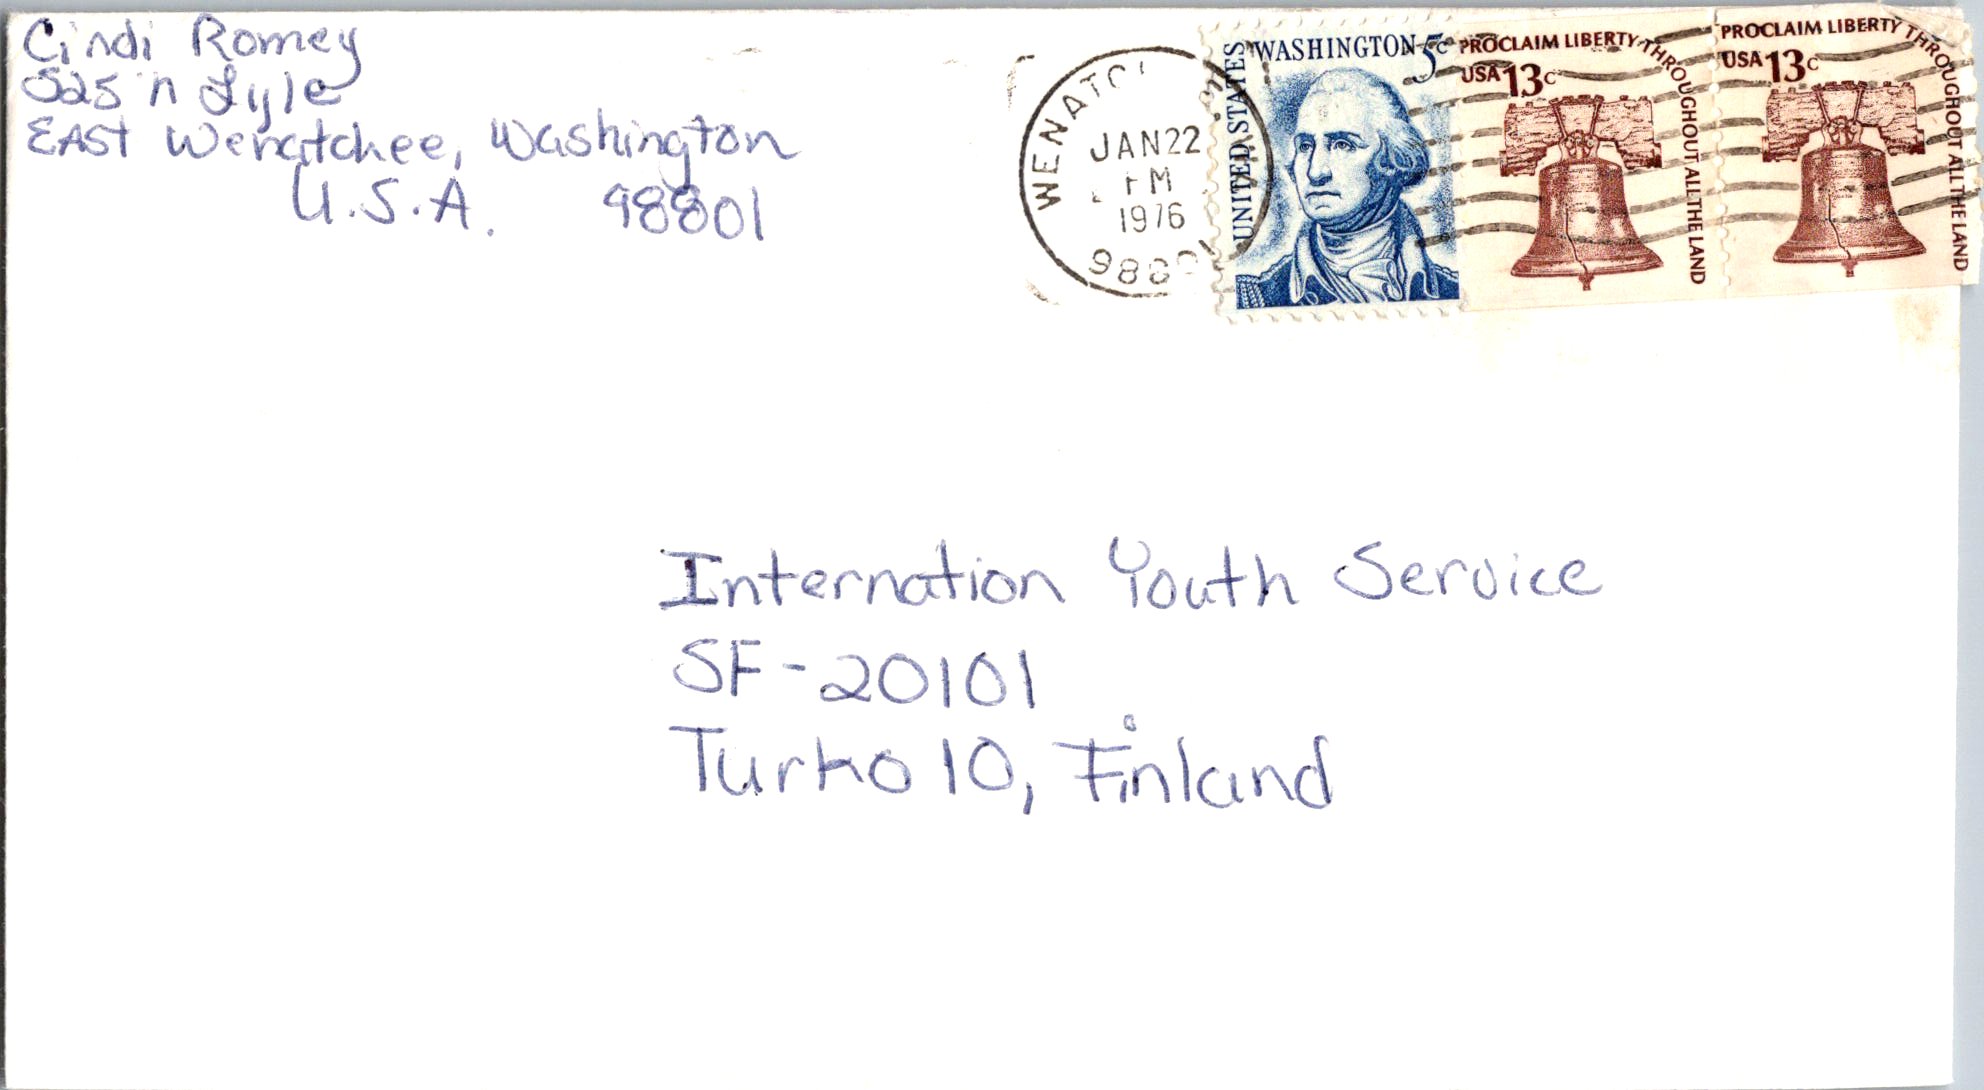 Cindi Romey
525 n Lyle
EAST Wenatchee, Washington
U.S.A. 98801
WENATC
JAN 22
PM
1976
9880
UNITED STATES
WASHINGTON 5c
PROCLAIM LIBERTY THROUGHOUT ALL THE LAND
USA 13c
PROCLAIM LIBERTY THROUGHOUT ALL THE LAND
USA 13c
Internation Youth Service
SF-20101
Turko 10, Finland